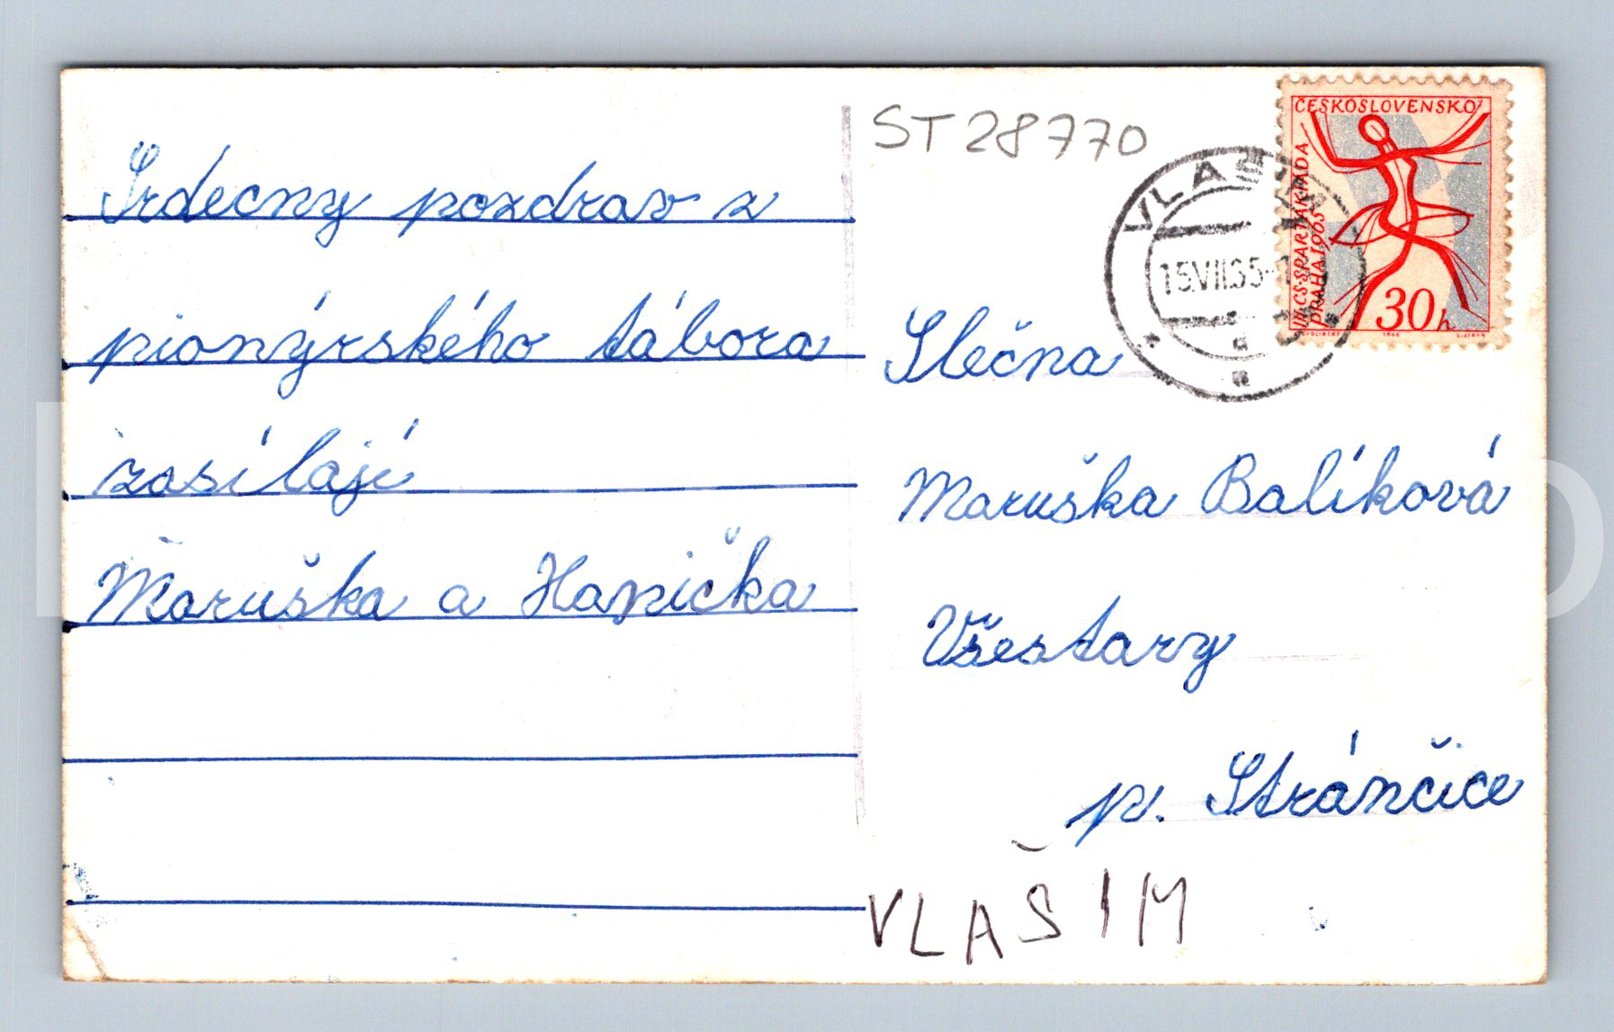 Srdecny pozdrav z
pionýrského tábora
zasílají
Maruška a Hanička
ST 28770
VLAŠIM
15.VII.65
ČESKOSLOVENSKO
III. CS. SPARTAKIÁDA
PRAHA 1965
30h
Slečna
Maruška Balíková
Všestary
p. Stránčice
VLAŠIM